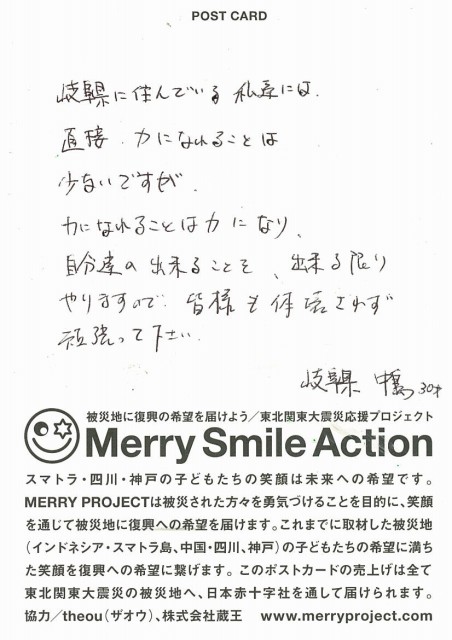 POST CARD
岐阜県に住んでいる 私達には、
直接 力になれることは
少ないですが、
力になれることは力になり、
自分達の出来ることを、出来る限り
やりますので、皆様も体壊さず
頑張って下さい。
岐阜県 30才
被災地に復興の希望を届けよう／東北関東大震災応援プロジェクト
Merry Smile Action
スマトラ・四川・神戸の子どもたちの笑顔は未来への希望です。
MERRY PROJECTは被災された方々を勇気づけることを目的に、笑顔
を通じて被災地に復興への希望を届けます。これまでに取材した被災地
（インドネシア・スマトラ島、中国・四川、神戸）の子どもたちの希望に満ち
た笑顔を復興への希望に繋げます。このポストカードの売上げは全て
東北関東大震災の被災地へ、日本赤十字社を通して届けられます。
協力／theou（ザオウ）、株式会社蔵王 www.merryproject.com